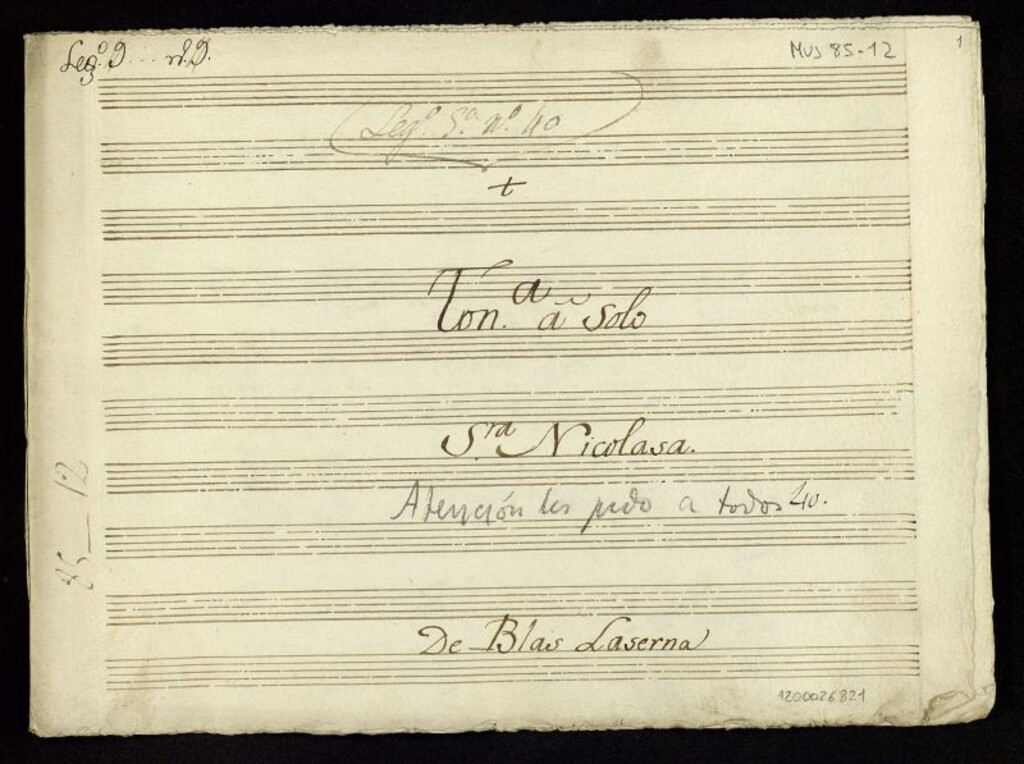 Leg.º 9 ... n.º 9.
3
MUS 85-12
1
Leg.º 5.º n.º 40
+
Ton.ª a solo
S.ra Nicolasa.
Atención les pido a todos 40.
85-12
De Blas Laserna
1200026821